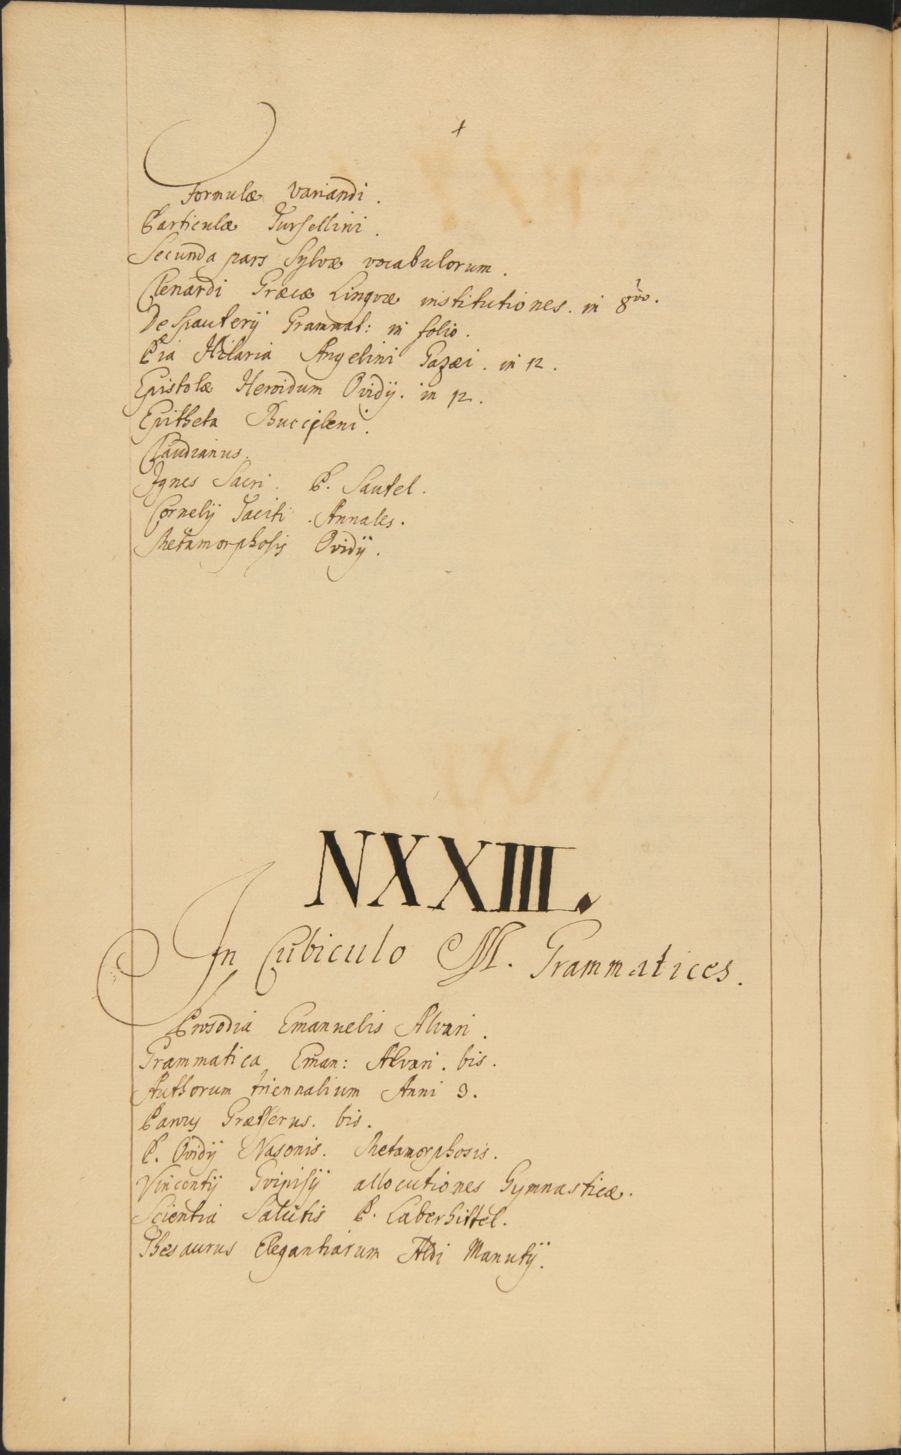 +
Formulæ Variandi.
Particulæ Tursellini.
Secunda pars Sylvæ vocabulorum.
Clenardi Græcæ Lingvæ institutiones. in 8vo.
Despauterij Grammat: in folio.
Pia Hilaria Angelini Gazæi. in 12.
Epistolæ Heroidum Ovidij. in 12.
Epitheta Buccileni.
Claudianus.
Ignes Sacri. P. Sautel.
Cornelij Taciti Annales.
Metamorphosis Ovidij.
NXXIII.
In Cubiculo M. Grammatices.
Prosodia Emanuelis Alvari.
Grammatica Eman: Alvari. bis.
Authorum triennalium Anni 3.
Parvus Grætserus. bis.
P. Ovidij Nasonis. Metamorphosis.
Vincentij Gvinisij allocutiones Gymnasticæ.
Scientia Salutis P. Laberhittel.
Thesaurus Elegantiarum Aldi Manutij.